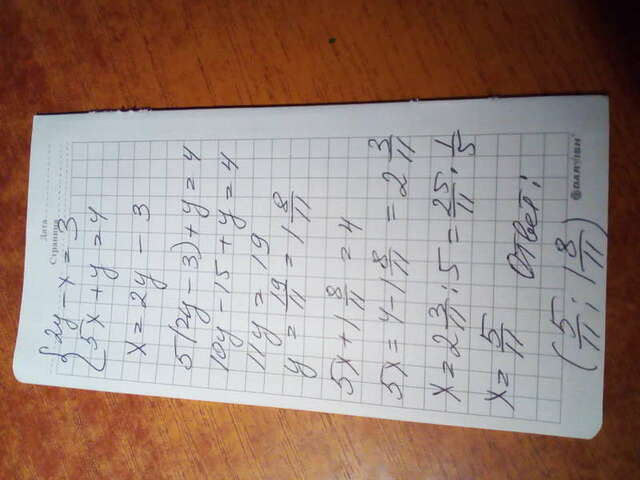 Дата
Страница
{2y - x = 3
{5x + y = 4
x = 2y - 3
5(2y - 3) + y = 4
10y - 15 + y = 4
11y = 19
y = 19/11 = 1 8/11
5x + 1 8/11 = 4
5x = 4 - 1 8/11 = 2 3/11
x = 2 3/11 : 5 = 25/11 · 1/5
x = 5/11 Ответ:
(5/11 ; 1 8/11)
DARVISH